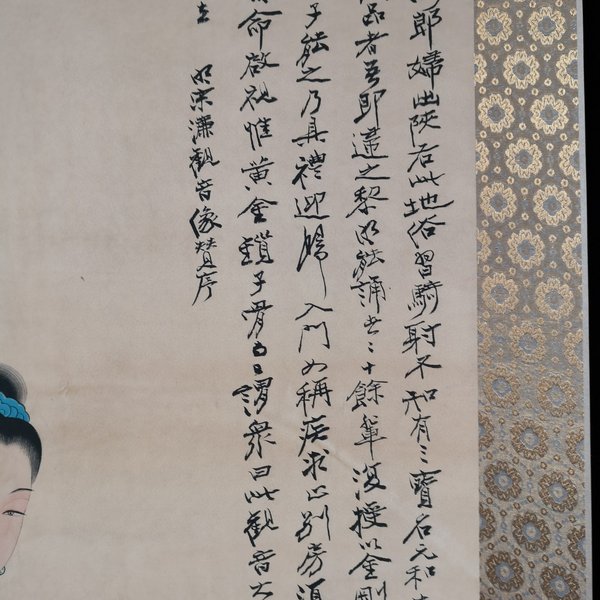 郎婦出陝右此地俗習騎射不知有三寶名元和
品者吾即之黎明能誦者二十餘輩復授以金剛
子能之乃具禮迎歸入門女稱疾求止別房須
命啟視惟黃金鎖子骨而已謂衆曰此觀音大
明宋濂觀音像贊序